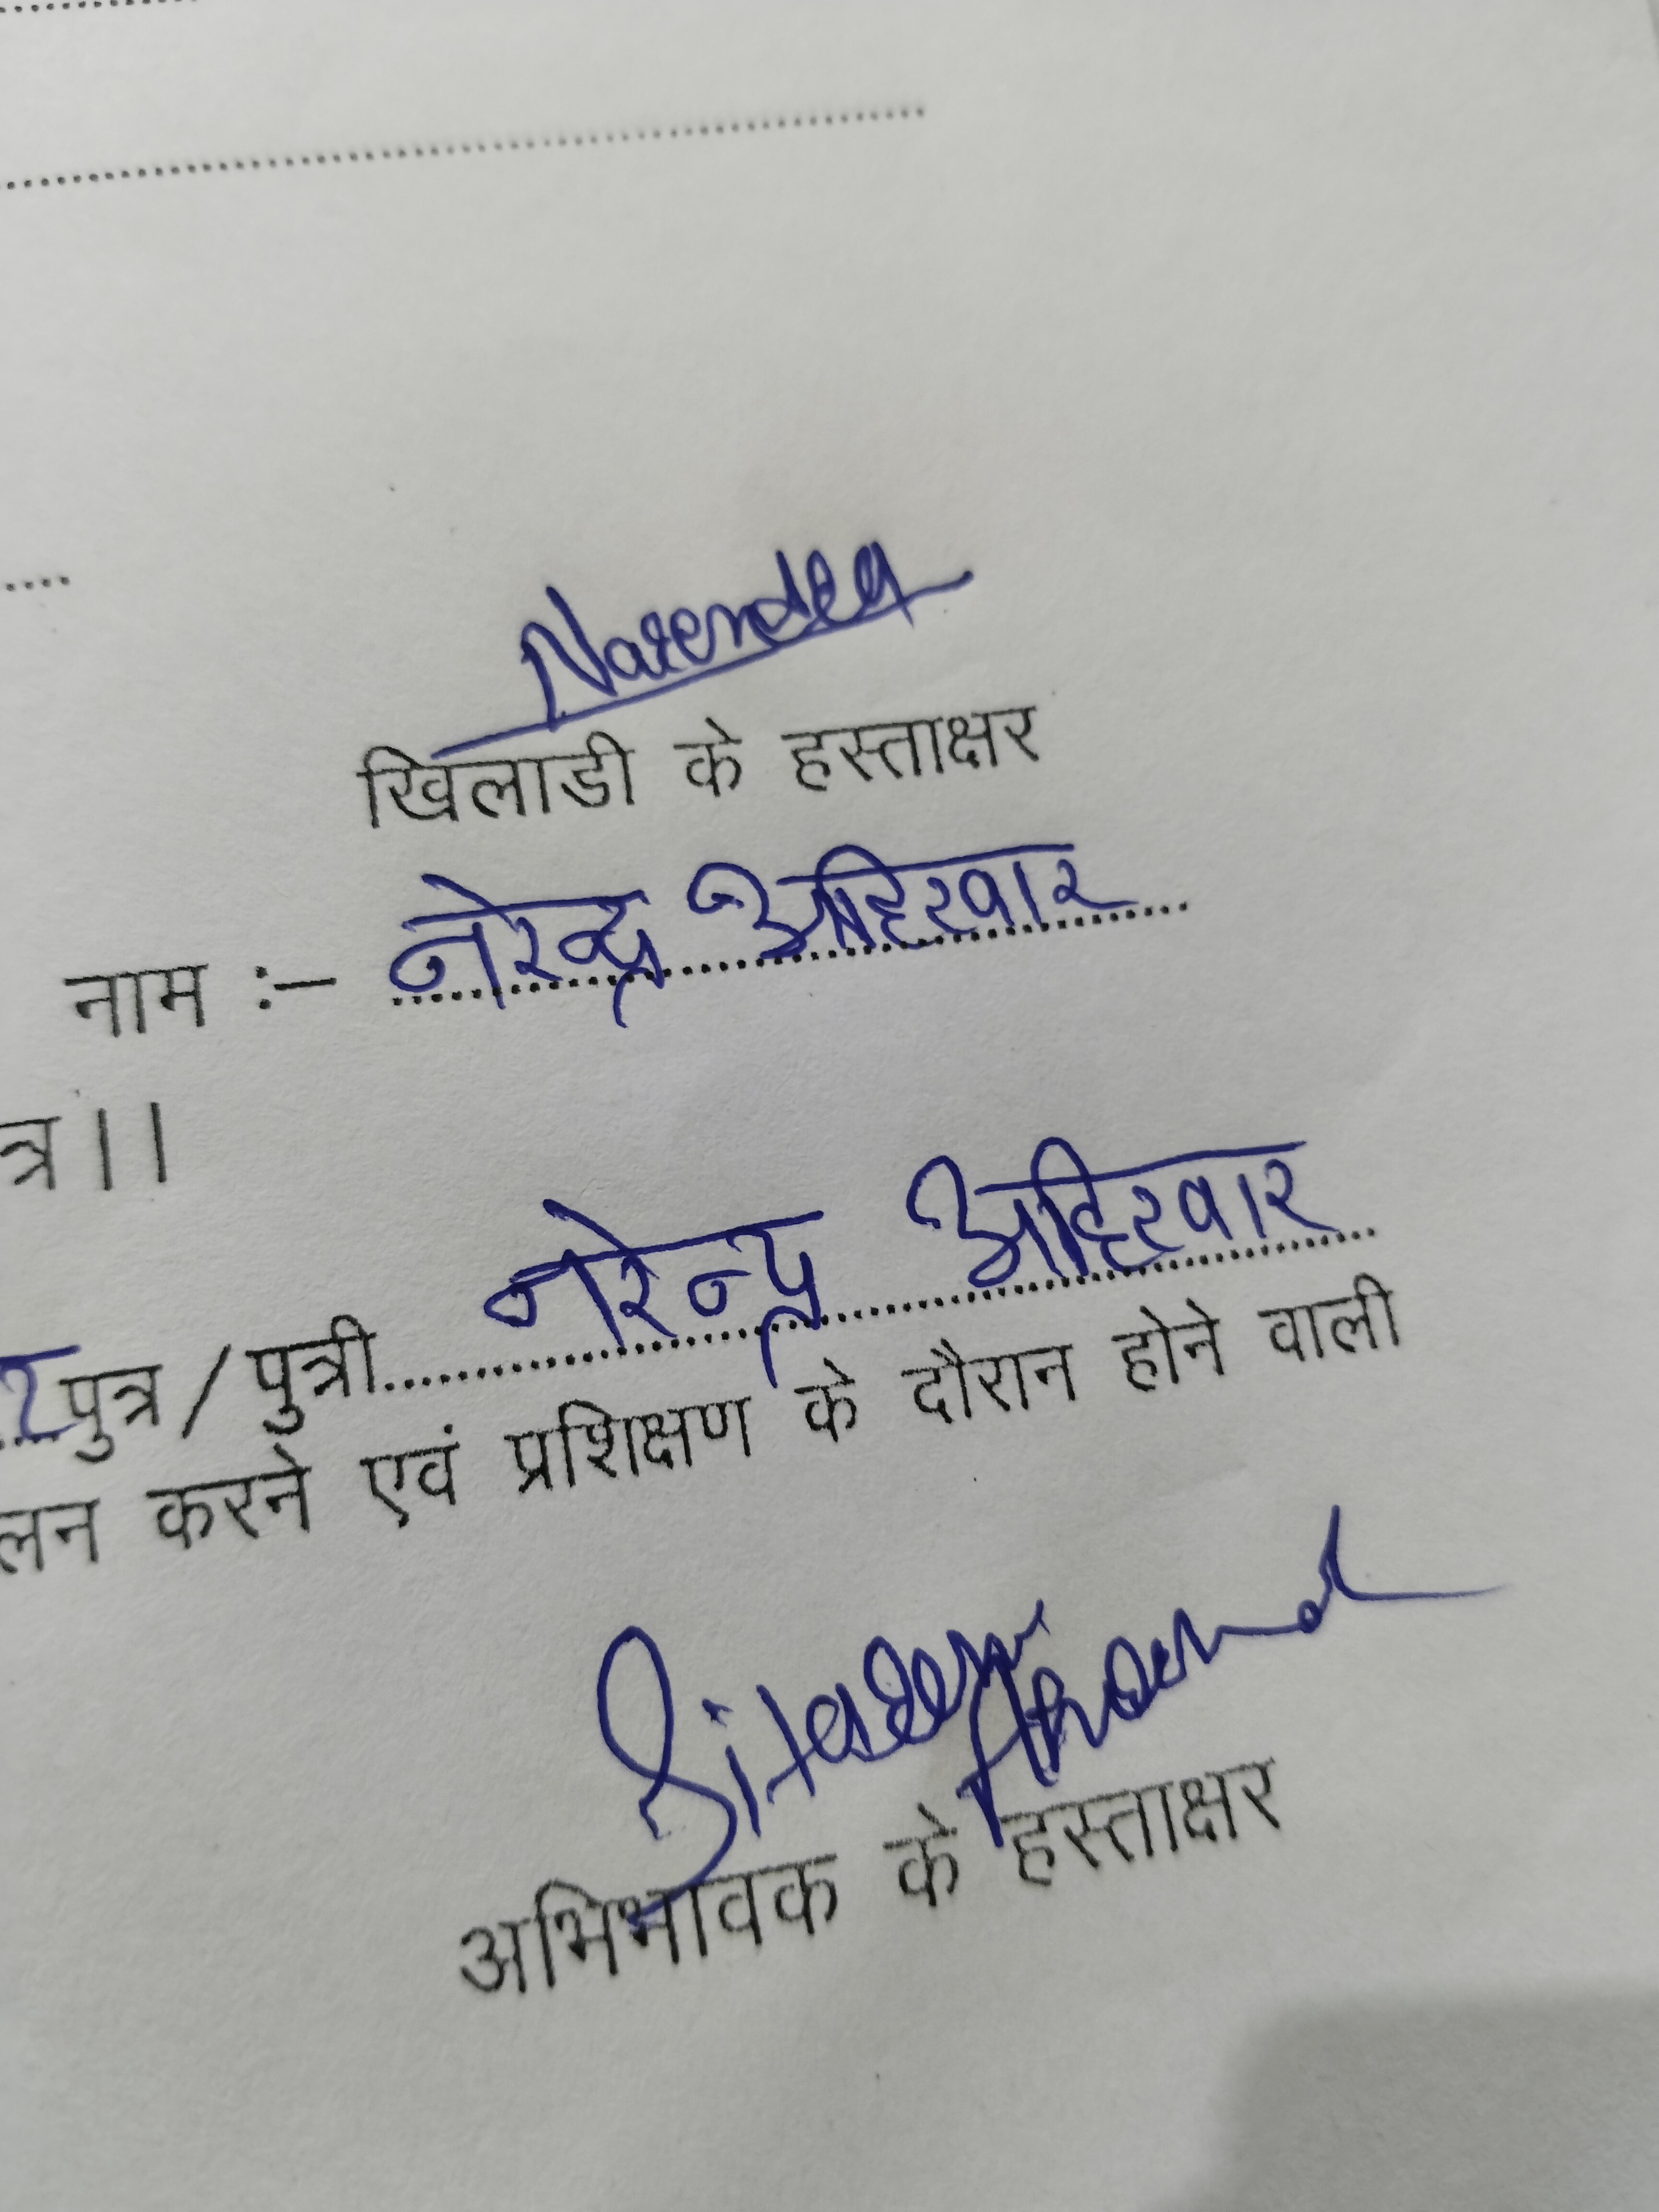 Narendra
खिलाडी के हस्ताक्षर
नाम :– नरेन्द्र अहिरवार
त्र।।
र पुत्र / पुत्री नरेन्द्र अहिरवार
लन करने एवं प्रशिक्षण के दौरान होने वाली
Sitaram
अभिभावक के हस्ताक्षर